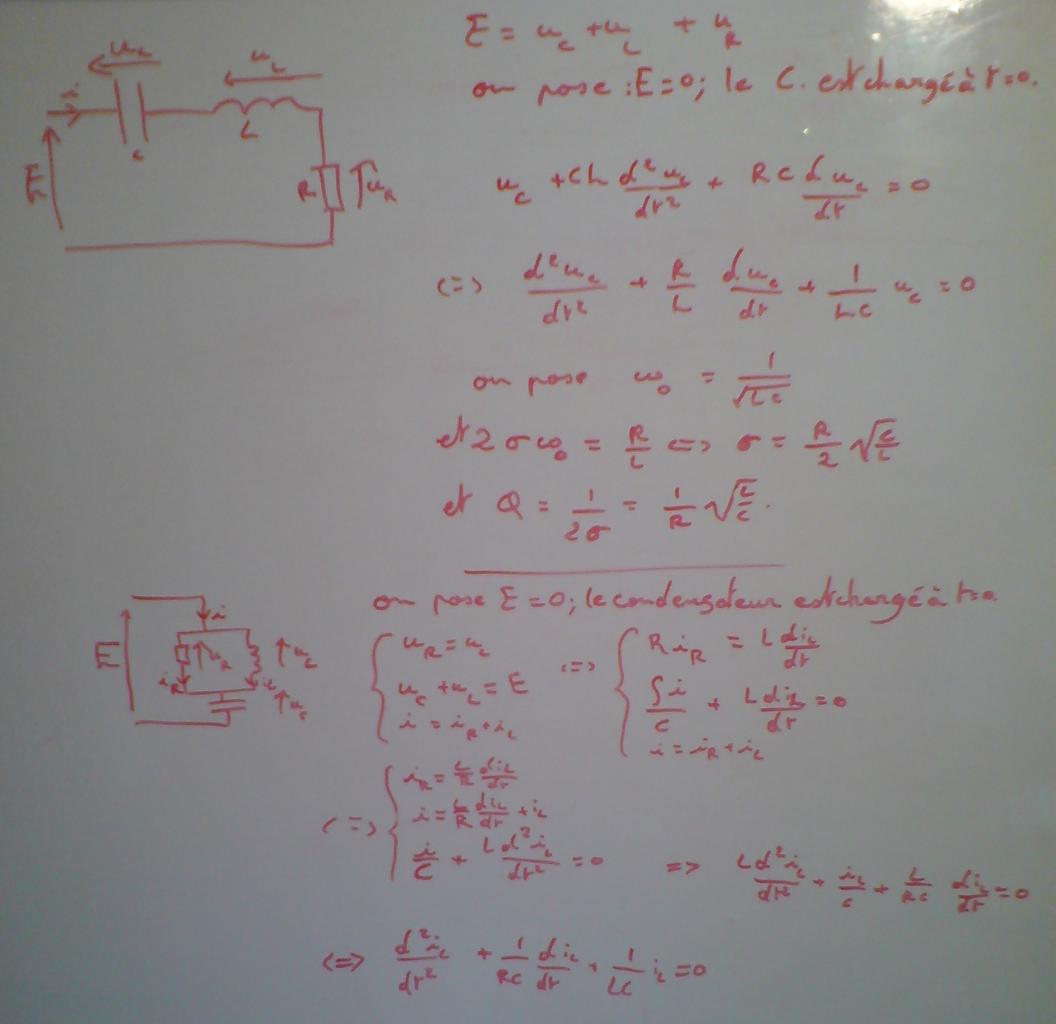 u_C
u_L
i
E
C
L
R
u_R
E = u_C + u_L + u_R
on pose : E=0; le C. est chargé à t=0.
u_C + CL d²u_C/dt² + RC du_C/dt = 0
<=> d²u_C/dt² + R/L du_C/dt + 1/LC u_C = 0
on pose ω₀ = 1/√LC
et 2σω₀ = R/L <=> σ = R/2 √C/L
et Q = 1/2σ = 1/R √L/C.
on pose E=0; le condensateur est chargé à t=0.
E
i
u_R
u_L
i_R
i_L
u_C
{ u_R = u_L
u_C + u_L = E
i = i_R + i_L
<=> { R i_R = L di_L/dt
∫i/C + L di_L/dt = 0
i = i_R + i_L
<=> { i_R = L/R di_L/dt
i = L/R di_L/dt + i_L
i/C + L d²i_L/dt² = 0
=> L d²i_L/dt² + i_L/C + L/RC di_L/dt = 0
<=> d²i_L/dt² + 1/RC di_L/dt + 1/LC i_L = 0